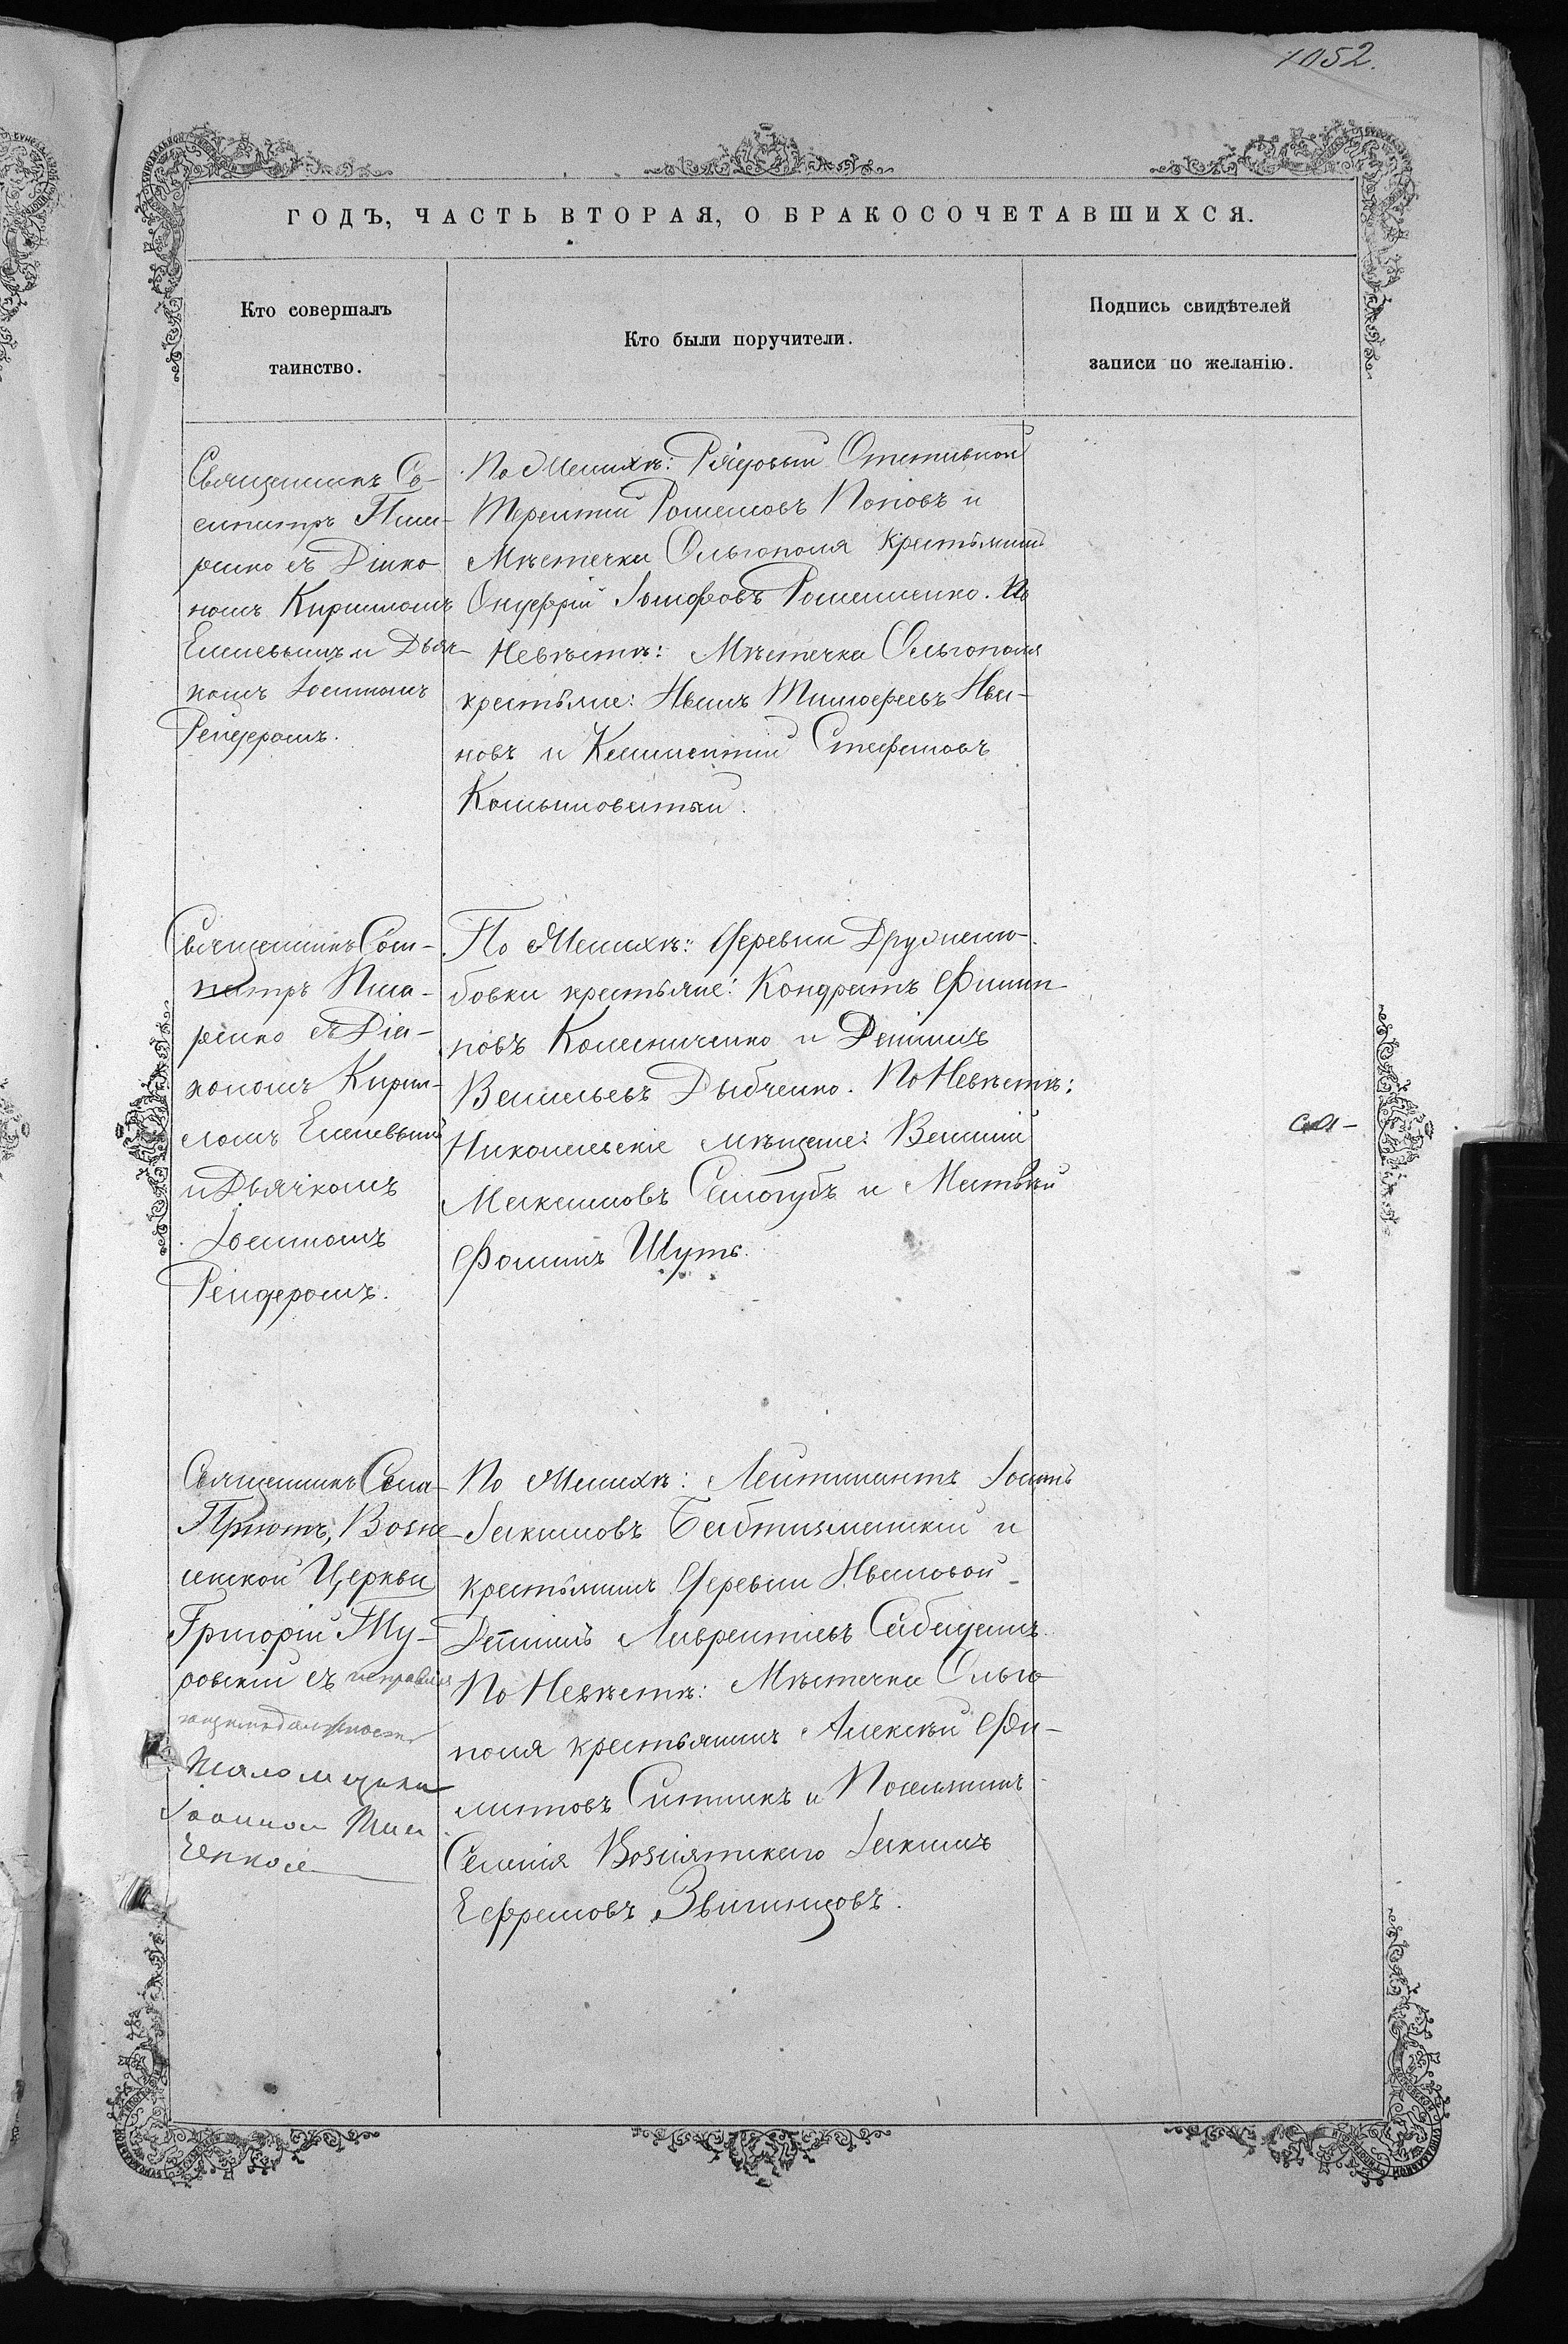 1052.
ГОДЪ, ЧАСТЬ ВТОРАЯ, О БРАКОСОЧЕТАВШИХСЯ.
Кто совершалъ
таинство.
Кто были поручители.
Подпись свидѣтелей
записи по желанію.
Священникъ Со-
сипатръ Писа-
ренко съ Діако
номъ Кирилломъ
и Дьяч-
комъ Іоанномъ
Рендеромъ.
По Женихѣ: Рядовый Отставной
Терентій Романовъ Поповъ и
Мѣстечка Ольгополя крестьянинъ
Онуфрій Іосифовъ Романенко. По
Невѣстѣ: Мѣстечка Ольгополя
крестьяне: Иванъ Тимофеевъ Ива-
новъ и Климентій Стефановъ
Священникъ Соси-
патръ Писа-
ренко съ Діа-
кономъ Кирил-
ломъ
и Дьячкомъ
Іоанномъ
Рендеромъ.
По Женихѣ: Деревни Дружелю-
бовки крестьяне: Кондратъ Филип-
повъ Колесниченко и Даніилъ
Васильевъ Дыбченко. По Невѣстѣ:
Николаевскіе мѣщане: Василій
Максимовъ Самогубъ и Матвѣй
Фоминъ Шутъ.
Священникъ
Пріютъ, Возне-
сенской Церкви
Григорій
съ исправля
ющимъ должность
Псаломщика
Іоанном
По Женихѣ: Лейтенантъ Іоаннъ
Іакимовъ и
крестьянинъ Деревни Ивановой
Даніилъ Лаврентіевъ
По Невѣстѣ: Мѣстечка Ольго
поля крестьянинъ Алексѣй Фи-
липовъ Ситникъ и Поселянинъ
Селенія Вознятскаго Іакимъ
Ефремовъ Звигинцовъ.